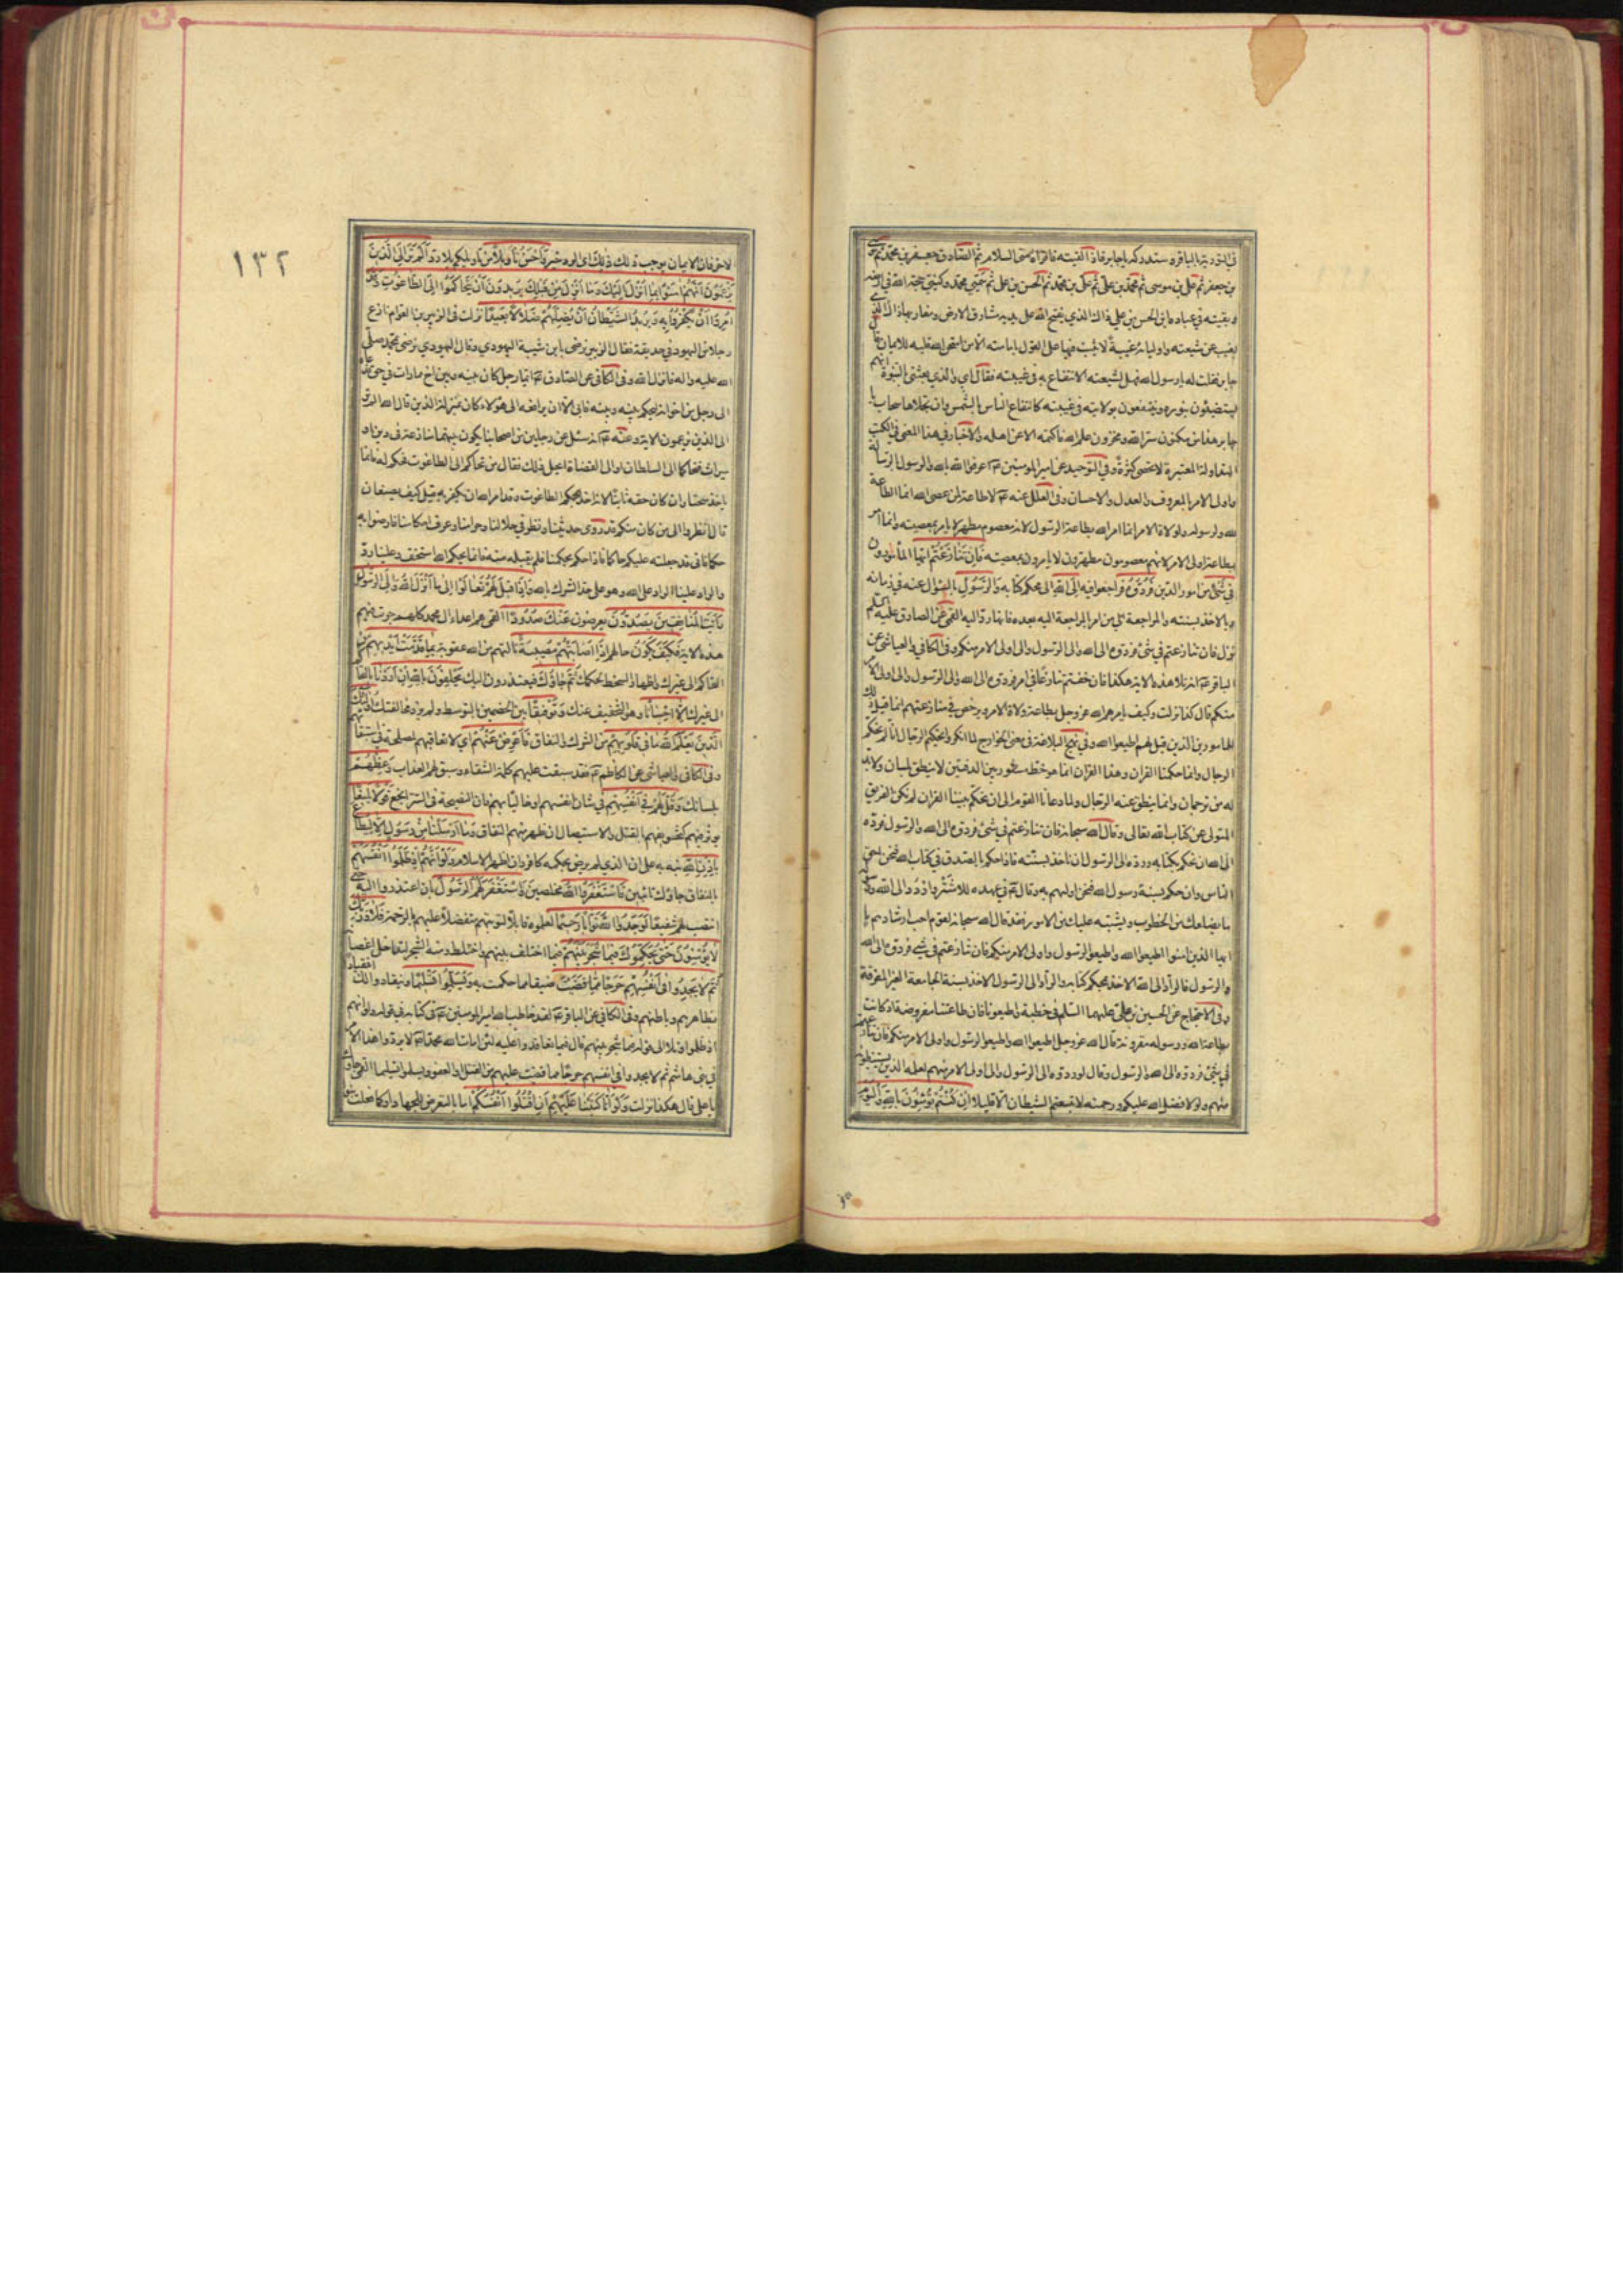 في التورية بالباقر وستدركه يا جابر فاذا القيته فاقراه مني السلام ثم الصادق جعفر بن محمد ثم موسى
بن جعفر ثم علي بن موسى ثم محمد بن علي ثم علي بن محمد ثم الحسن بن علي ثم سميي محمد وكنيي حجة الله في ارضه
وبقيته في عباده ابن الحسن بن علي ذاك الذي يفتح الله على يديه مشارق الارض ومغاربها ذاك الذي
يغيب عن شيعته واوليائه غيبة لا يثبت فيها على القول بامامته الا من امتحن الله قلبه للايمان قال
جابر فقلت له يا رسول الله فهل لشيعته الانتفاع به في غيبته فقال اي والذي بعثني بالنبوة انهم
ليستضيئون بنوره وينتفعون بولايته في غيبته كانتفاع الناس بالشمس وان تجلاها سحاب يا
جابر هذا من مكنون سر الله ومخزون علم الله فاكتمه الا عن اهله والاخبار في هذا المعنى في الكتب
المتداولة المعتبرة لا تحصى كثرة وفي التوحيد عن امير المؤمنين عم اعرفوا الله بالله والرسول بالرسالة
واولى الامر بالمعروف والعدل والاحسان وفي العلل عنه عم لا طاعة لمن عصى الله انما الطاعة
لله ولرسوله ولولاة الامر انما امر الله بطاعة الرسول لانه معصوم مطهر لا يامر بمعصيته وانما امر
بطاعة اولى الامر لانهم معصومون مطهرون لا يامرون بمعصيته فَاِنْ تَنٰازَعْتُمْ ايها المأمورون
في شَيْءٍ من امور الدين فَرُدُّوهُ فراجعوا فيه اِلَى اللهِ الى محكم كتابه وَالرَّسُولِ بالسؤال عنه في زمانه
وبالاخذ بسنته والمراجعة الى من امر بالمراجعة اليه بعده فانها رد اليه القمي عن الصادق عليه السلم
نزل فان تنازعتم في شئ فردوه الى الله والى الرسول والى اولى الامر منكم وفي الكافي والعياشي عن
الباقر عم انه تلا هذه الاية هكذا فان خفتم تنازعا في امر فردوه الى الله والى الرسول والى اولى الامر
منكم قال كذا نزلت وكيف يامرهم الله عز وجل بطاعة ولاة الامر ويرخص في منازعتهم انما قيل ذلك
للمامورين الذين قيل لهم اطيعوا الله وفي نهج البلاغة في معنى الخوارج لما انكروا تحكيم الرجال انا لم نحكم
الرجال وانما حكمنا القران وهذا القران انما هو خط مسطور بين الدفتين لا ينطق بلسان ولا بد
له من ترجمان وانما ينطق عنه الرجال ولما دعانا القوم الى ان نحكم بيننا القران لم نكن الفريق
المتولى عن كتاب الله تعالى وقال الله سبحانه فان تنازعتم في شئ فردوه الى الله والرسول فرده
الى الله ان نحكم بكتابه ورده الى الرسول ان ناخذ بسنته فاذا حكم بالصدق في كتاب الله فنحن احق
الناس وان حكم بسنة رسول الله فنحن اولاهم به وقال عم في عهده للاشتر واردد الى الله ورسوله
ما يضلعك من الخطوب ويشتبه عليك من الامور فقد قال الله سبحانه لقوم احب ارشادهم يا
ايها الذين امنوا اطيعوا الله واطيعوا الرسول واولى الامر منكم فان تنازعتم في شئ فردوه الى الله
والرسول فالراد الى الله الاخذ بمحكم كتابه والراد الى الرسول الاخذ بسنته الجامعة الغير المفرقة
وفي الاحتجاج عن الحسين بن علي عليهما السلم في خطبة واطيعونا فان طاعتنا مفروضة اذ كانت
بطاعة الله ورسوله مقرونة قال الله عز وجل اطيعوا الله واطيعوا الرسول واولى الامر منكم فان تنازعتم
في شئ فردوه الى الله والرسول وقال لو ردوه الى الرسول والى اولى الامر منهم لعلمه الذين يستنبطونه
منهم ولولا فضل الله عليكم ورحمته لاتبعتم الشيطان الا قليلا اِنْ كُنْتُمْ تُؤْمِنُونَ بِاللهِ وَالْيَوْمِ
١٣٢
الاخر فان الايمان يوجب ذلك ذٰلِكَ اى الرد خَيْرٌ وَاَحْسَنُ تَأْوِيلاً من تاويلكم بلا رد اَلَمْ تَرَ اِلَى الَّذِينَ
يَزْعُمُونَ اَنَّهُمْ اٰمَنُوا بِمٰا اُنْزِلَ اِلَيْكَ وَمٰا اُنْزِلَ مِنْ قَبْلِكَ يُرِيدُونَ اَنْ يَتَحٰاكَمُوا اِلَى الطّٰاغُوتِ وَقَدْ
اُمِرُوا اَنْ يَكْفُرُوا بِهِ وَيُرِيدُ الشَّيْطٰانُ اَنْ يُضِلَّهُمْ ضَلاٰلاً بَعِيداً نزلت في الزبير بن العوام نازع
رجلا من اليهود في حديقة فقال الزبير نرضى بابن شيبة اليهودي وقال اليهودي نرضى بمحمد صلى
الله عليه واله فانزل الله وفي الكافي عن الصادق عم ايما رجل كان بينه وبين اخ مماراة في حق فدعاه
الى رجل من اخوانه ليحكم بينه وبينه فابى الا ان يرافعه الى هؤلاء كان بمنزلة الذين قال الله الم تر
الى الذين يزعمون الاية وعنه عم انه سئل عن رجلين من اصحابنا يكون بينهما منازعة في دين او
ميراث فتحاكما الى السلطان او الى القضاة ايحل ذلك فقال من تحاكم الى الطاغوت فحكم له فانما
ياخذ سحتا وان كان حقه ثابتا لانه اخذ بحكم الطاغوت وقد امر الله ان يكفر به قيل كيف يصنعان
قال انظروا الى من كان منكم قد روى حديثنا ونظر في حلالنا وحرامنا وعرف احكامنا فارضوا به
حكما فاني قد جعلته عليكم حاكما فاذا حكم بحكمنا فلم يقبله منه فانما بحكم الله استخف وعلينا رد
والراد علينا الراد على الله وهو على حد الشرك بالله وَاِذٰا قِيلَ لَهُمْ تَعٰالَوْا اِلىٰ مٰا اَنْزَلَ اللهُ وَاِلَى الرَّسُولِ
رَاَيْتَ الْمُنٰافِقِينَ يَصُدُّونَ يعرضون عَنْكَ صُدُوداً القمي هم اعداء ال محمد كلهم جرت فيهم
هذه الاية فَكَيْفَ يكون حالهم اِذٰا اَصٰابَتْهُمْ مُصِيبَةٌ نالتهم من الله عقوبة بِمٰا قَدَّمَتْ اَيْدِيهِمْ من
التحاكم الى غيرك واظهار السخط لحكمك ثُمَّ جٰاؤُكَ فيعتذرون اليك يَحْلِفُونَ بِاللهِ اِنْ اَرَدْنٰا بالتحاكم
الى غيرك اِلاّٰ اِحْسٰاناً وهو التخفيف عنك وَتَوْفِيقاً بين الخصمين بالتوسط ولم نرد مخالفتك اُولٰئِكَ
الَّذِينَ يَعْلَمُ اللهُ مٰا فِي قُلُوبِهِمْ من الشرك والنفاق فَاَعْرِضْ عَنْهُمْ اي لا تعاقبهم لمصلحة في استبقائهم
وفي الكافي والعياشي عن الكاظم عم فقد سبقت عليهم كلمة الشقاء وسبق لهم العذاب وَعِظْهُمْ
بلسانك وَقُلْ لَهُمْ فِي اَنْفُسِهِمْ في شان انفسهم او خاليا بهم فان النصيحة في السر انجع قَوْلاً بَلِيغاً
يؤثر فيهم كتخويفهم بالقتل والاستيصال ان ظهر منهم النفاق وَمٰا اَرْسَلْنٰا مِنْ رَسُولٍ اِلاّٰ لِيُطٰاعَ
بِاِذْنِ اللهِ نبه به على ان الذي لم يرض بحكمه كافر وان اظهر الاسلام وَلَوْ اَنَّهُمْ اِذْ ظَلَمُوا اَنْفُسَهُمْ
بالنفاق جاؤك تائبين فَاسْتَغْفَرُوا اللهَ مخلصين وَاسْتَغْفَرَ لَهُمُ الرَّسُولُ بان اعتذروا اليه حتى
انتصب لهم شفيعا لَوَجَدُوا اللهَ تَوّٰاباً رَحِيماً لعلموه قابلا لتوبتهم متفضلا عليهم بالرحمة فَلاٰ وَرَبِّكَ
لاٰ يُؤْمِنُونَ حَتّٰى يُحَكِّمُوكَ فِيمٰا شَجَرَ بَيْنَهُمْ فيما اختلف بينهم واختلط ومنه الشجر لتداخل اغصانه
ثُمَّ لاٰ يَجِدُوا فِي اَنْفُسِهِمْ حَرَجاً مِمّٰا قَضَيْتَ ضيقا مما حكمت به وَيُسَلِّمُوا تَسْلِيماً وينقادوا لك انقيادا
بظاهرهم وباطنهم وفي الكافي عن الباقر عم لقد خاطب الله امير المؤمنين عم في كتابه في قوله ولو انهم
اذ ظلموا وتلا الى قوله فيما شجر بينهم قال فيما تعاقدوا عليه لئن امات الله محمدا لا يردوا هذا الامر
في بني هاشم ثم لا يجدوا في انفسهم حرجا مما قضيت عليهم من القتل او العفو ويسلموا تسليما القمي جاؤك
يا علي قال هكذا نزلت وَلَوْ اَنّٰا كَتَبْنٰا عَلَيْهِمْ اَنِ اقْتُلُوا اَنْفُسَكُمْ اما بالتعرض للجهاد او كما فعلت بنو